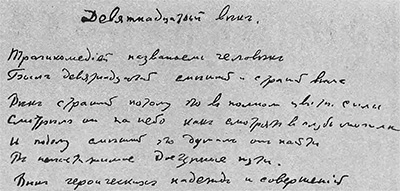 Девятнадцатый век.
Трагикомедией названьем человек
Был девятнадцатый смешной и страшный век
Век страшный потому что в полном цвете силы
Смотрел он на небо как смотрят в глубь могилы
И потому смешной что думал он найти
В недостижимое доступные пути.
Век героических надежд и совершений